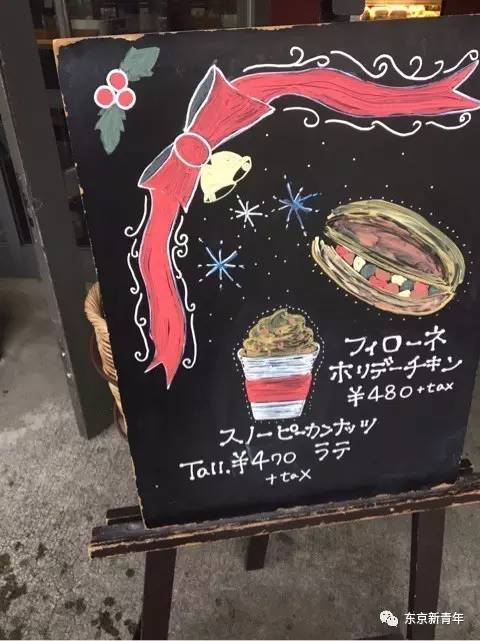 フィローネ
ホリデーチキン
¥480+tax
スノーピーカンナッツ
Tall.¥470 ラテ
+tax
东京新青年